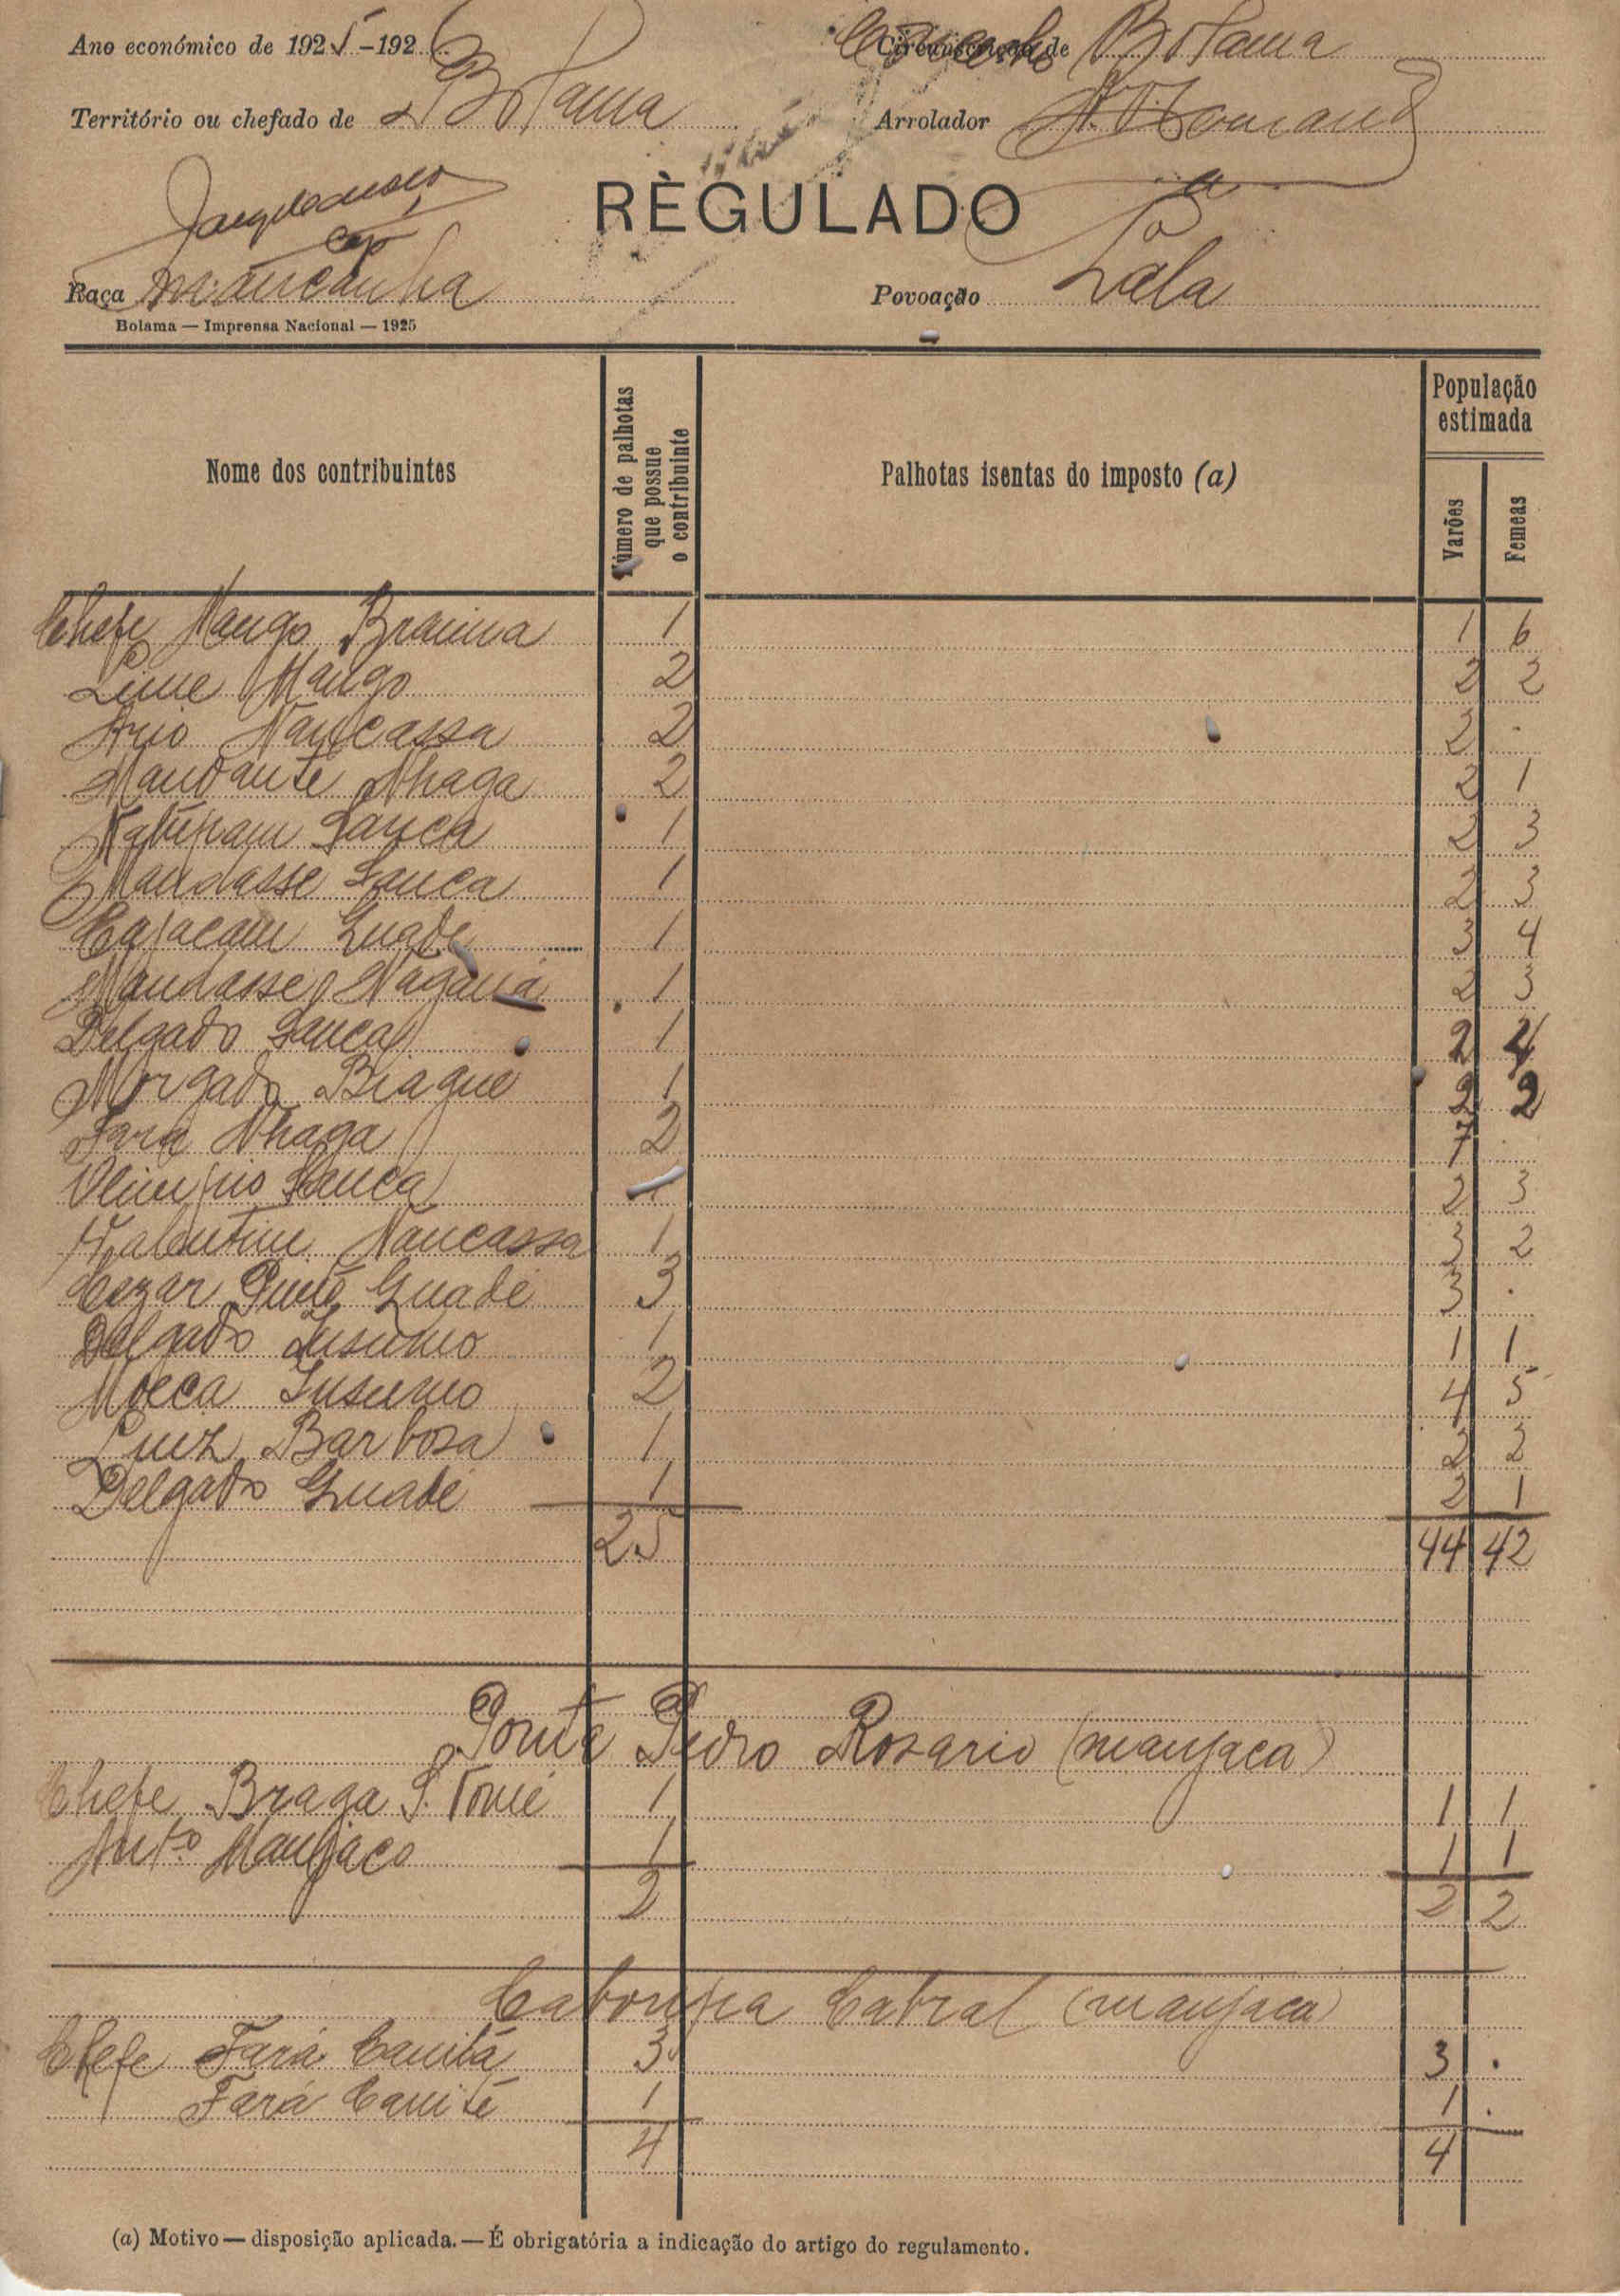 Ano económico de 1925-1926 Concelho de Bolama
Território ou chefado de Bolama Arrolador
RÈGULADO
Raça mancanha Povoação Lala
Bolama — Imprensa Nacional — 1925
Nome dos contribuintes
Número de palhotas que possue o contribuinte
Palhotas isentas do imposto (a)
População estimada
Varões
Femeas
Chefe Mango Brama 1 1 6
Mango 2 2 2
Nancassa 2 2 .
Mandante Nhaga 2 2 1
Sanca 1 2 3
Mandasse Sanca 1 2 3
Cajacam Guadé 1 3 4
Mandasse 1 2 3
Delgado Sanca 1 2 4
Morgado Biague 1 2 2
Fara Nhaga 2 7 .
Olimpio Sanca 1 2 3
Valentim Nancassa 1 3 2
Cezar Guadé 3 3 .
Delgado Insumo 1 1 1
Moeca Insumo 2 4 5
Luiz Barbosa 1 2 2
Delgado Guadé 1 2 1
25 44 42
Ponta Pedro Rosario (manjaca)
Chefe Braga S. Tomé 1 1 1
Ant.º Manjaco 1 1 1
2 2 2
Cabral (manjaca)
Chefe Fará Canitá 3 3 .
Fará Canité 1 1 .
4 4
(a) Motivo — disposição aplicada. — É obrigatória a indicação do artigo do regulamento.